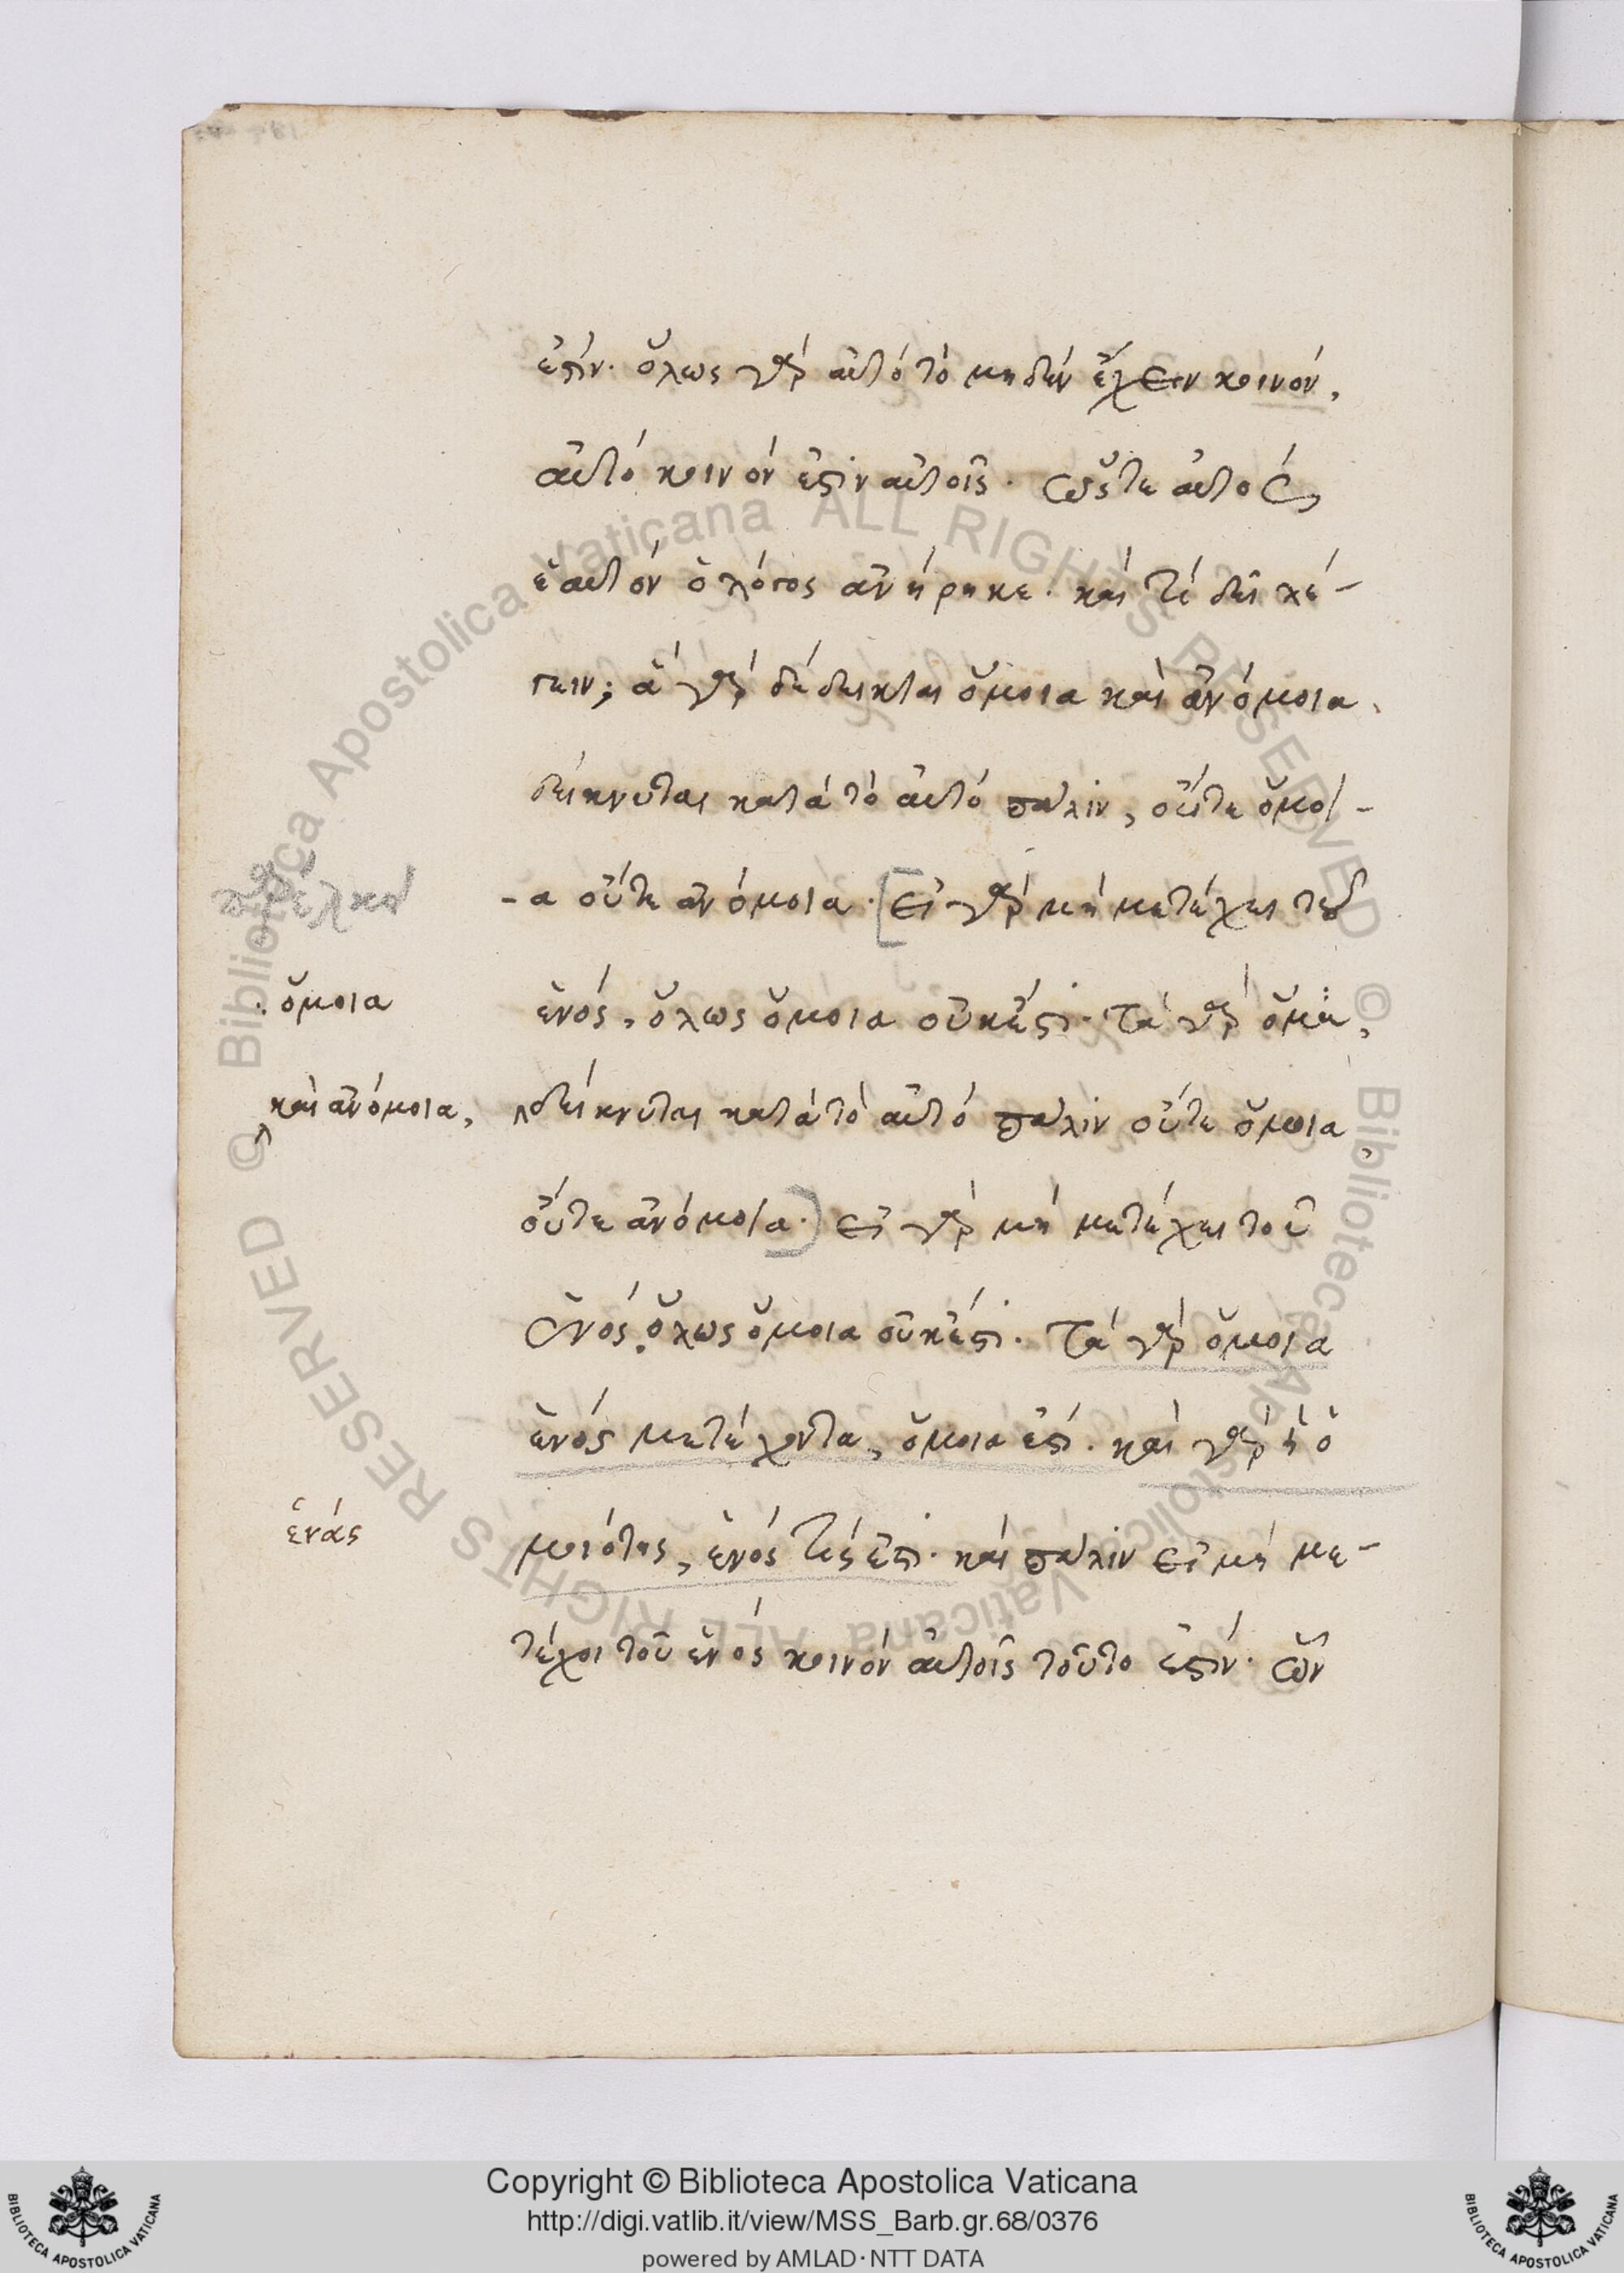 ἐστίν· ὅλως γὰρ αὐτὸ τὸ μηδὲν ἔχειν κοινόν,
αὐτὸ κοινόν ἐστιν αὐτοῖς· ὥστε αὐτὸς
ἑαυτὸν ὁ λόγος ἀνήρηκε· καὶ τί δεῖ λέ-
γειν; ἃ γὰρ δέδεικται ὅμοια καὶ ἀνόμοια
δείκνυται κατὰ τὸ αὐτὸ πάλιν, οὔτε ὅμοι-
-α οὔτε ἀνόμοια· [εἰ γὰρ μὴ μετέχει τοῦ
ὅμοια
ἑνός, ὅλως ὅμοια οὐκ ἔστι· τὰ γὰρ ὅμοια,
καὶ ἀνόμοια,
δείκνυται κατὰ τὸ αὐτὸ πάλιν οὔτε ὅμοια
οὔτε ἀνόμοια·) εἰ γὰρ μὴ μετέχει τοῦ
ἑνός, ὅλως ὅμοια οὐκ ἔστι· τὰ γὰρ ὅμοια
ἑνός μετέχοντα, ὅμοιά ἐστι· καὶ γὰρ ἡ ὁ
ἑνάς
μοιότης, ἑνός τίς ἐστι· καὶ πάλιν εἰ μὴ με-
τέχοι τοῦ ἑνὸς κοινὸν αὐτοῖς τοῦτο ἐστίν· ὧν
© Biblioteca Apostolica Vaticana ALL RIGHTS RESERVED
© Biblioteca Apostolica Vaticana ALL RIGHTS RESERVED
Copyright © Biblioteca Apostolica Vaticana
http://digi.vatlib.it/view/MSS_Barb.gr.68/0376
powered by AMLAD·NTT DATA
BIBLIOTECA APOSTOLICA VATICANA
BIBLIOTECA APOSTOLICA VATICANA